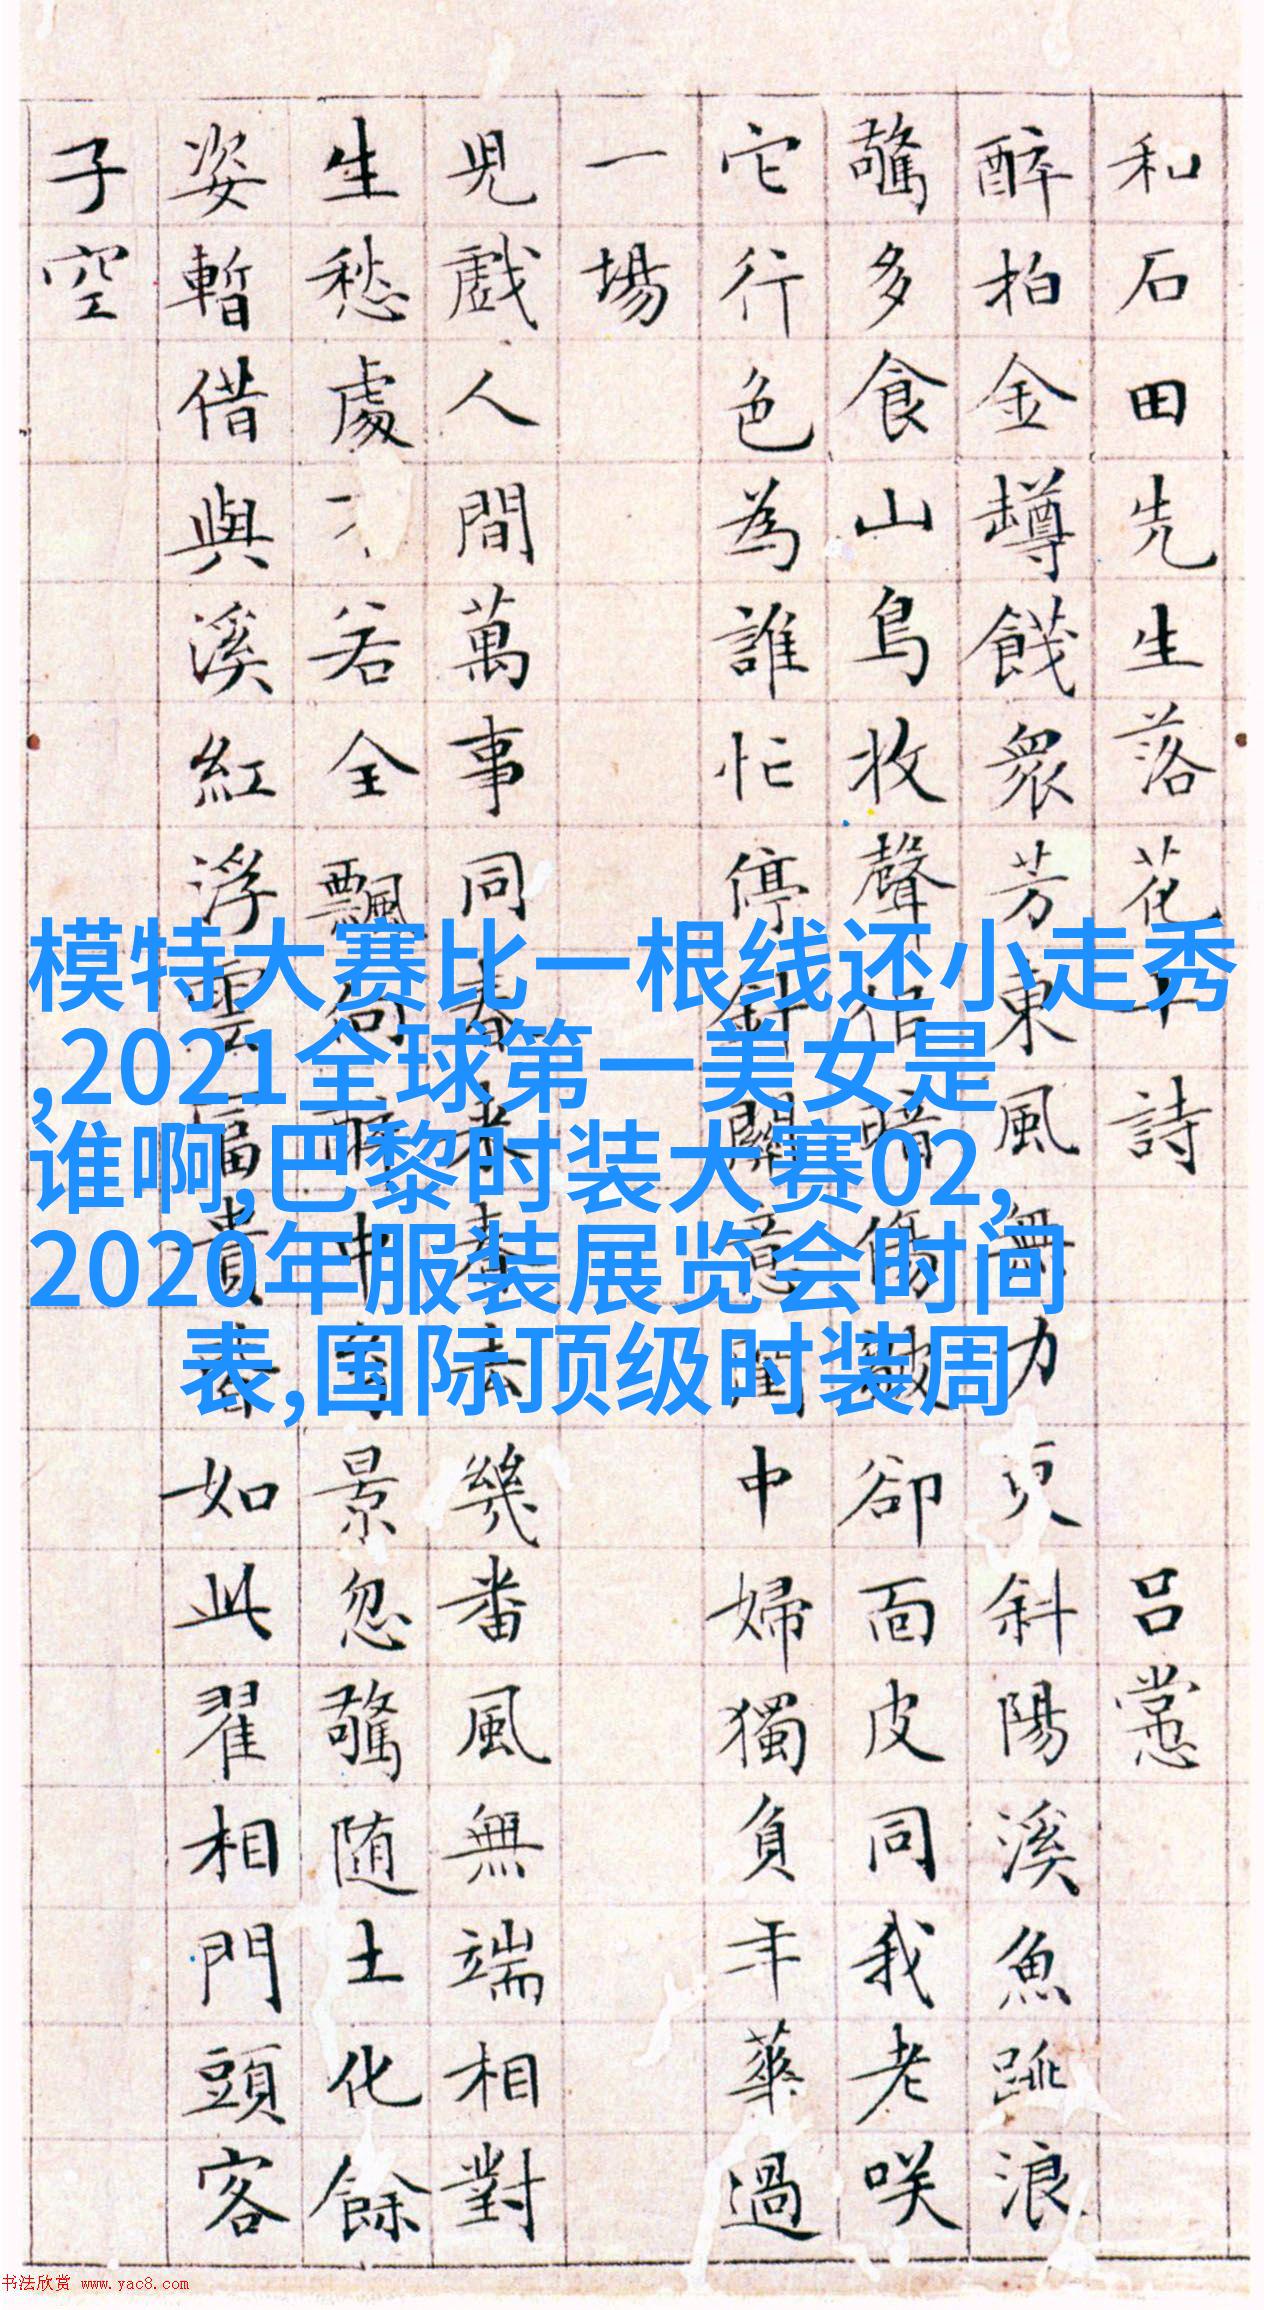 和石田先生落花十詩 呂㦂
醉拍金罇餞衆芳東風無力更斜陽溪魚跳浪
驚多食山鳥收聲暗傷皺卻面皮同我老咲
它行色為誰忙停針關意閨中婦獨負年華過
一場
兒戲人間萬事同春來春去幾番風無端相對
生愁處不若全飄向醉中景忽驚随土化餘
姿暫借與溪紅浮雲富貴春如此翟相門頭客
子空
模特大赛比一根线还小走秀
,2021全球第一美女是
谁啊,巴黎时装大赛02,
2020年服装展览会时间
表,国际顶级时装周
书法欣赏 www.yac8.com